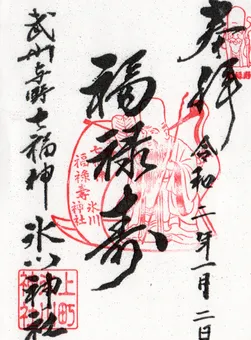 奉拝
令和二年一月二日
福禄寿
武州与野七福神
氷川神社
七福
福禄寿
氷川
神社
上町